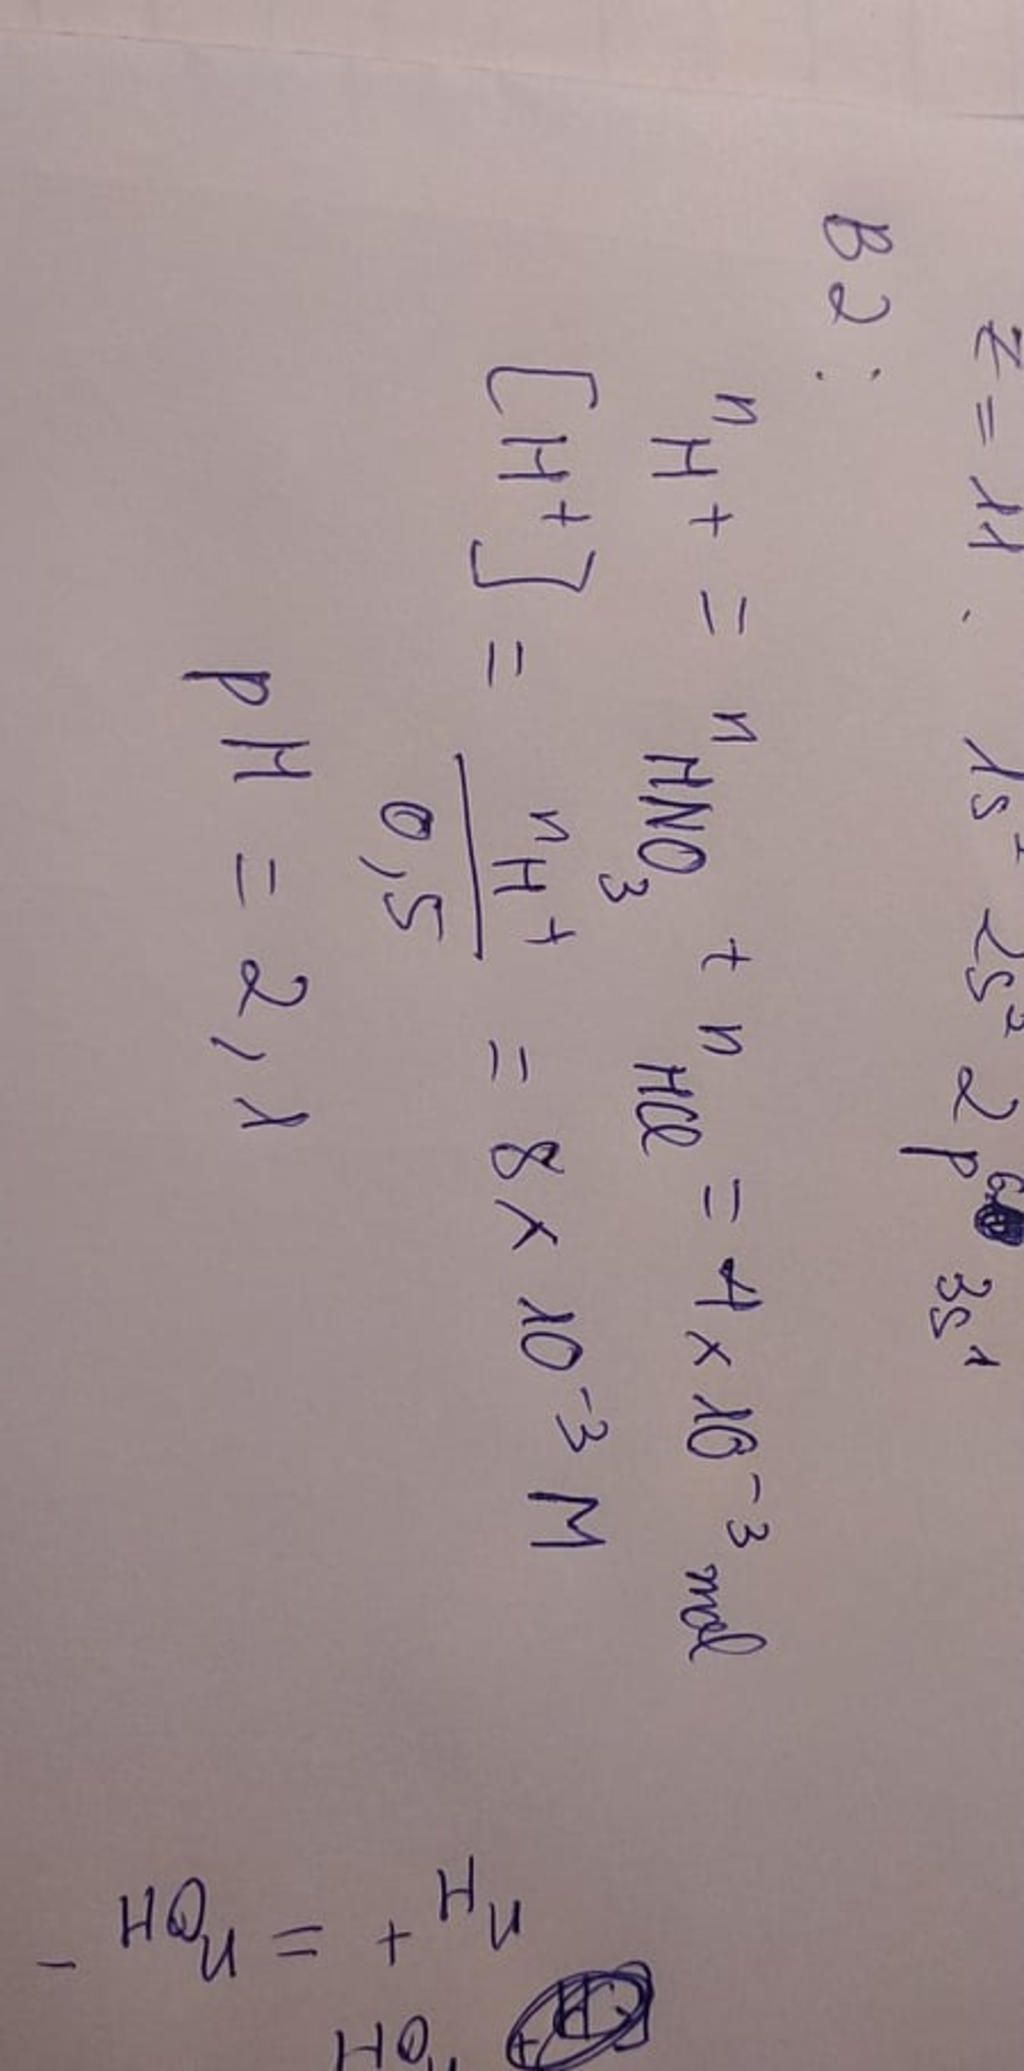 Z = 11. 1s² 2s² 2p⁶ 3s¹
B2:
nH+ = nHNO₃ + nHCl = 4 x 10⁻³ mol
[H⁺] = nH+ / 0,5 = 8 x 10⁻³ M
pH = 2,1
nH+ = nOH-